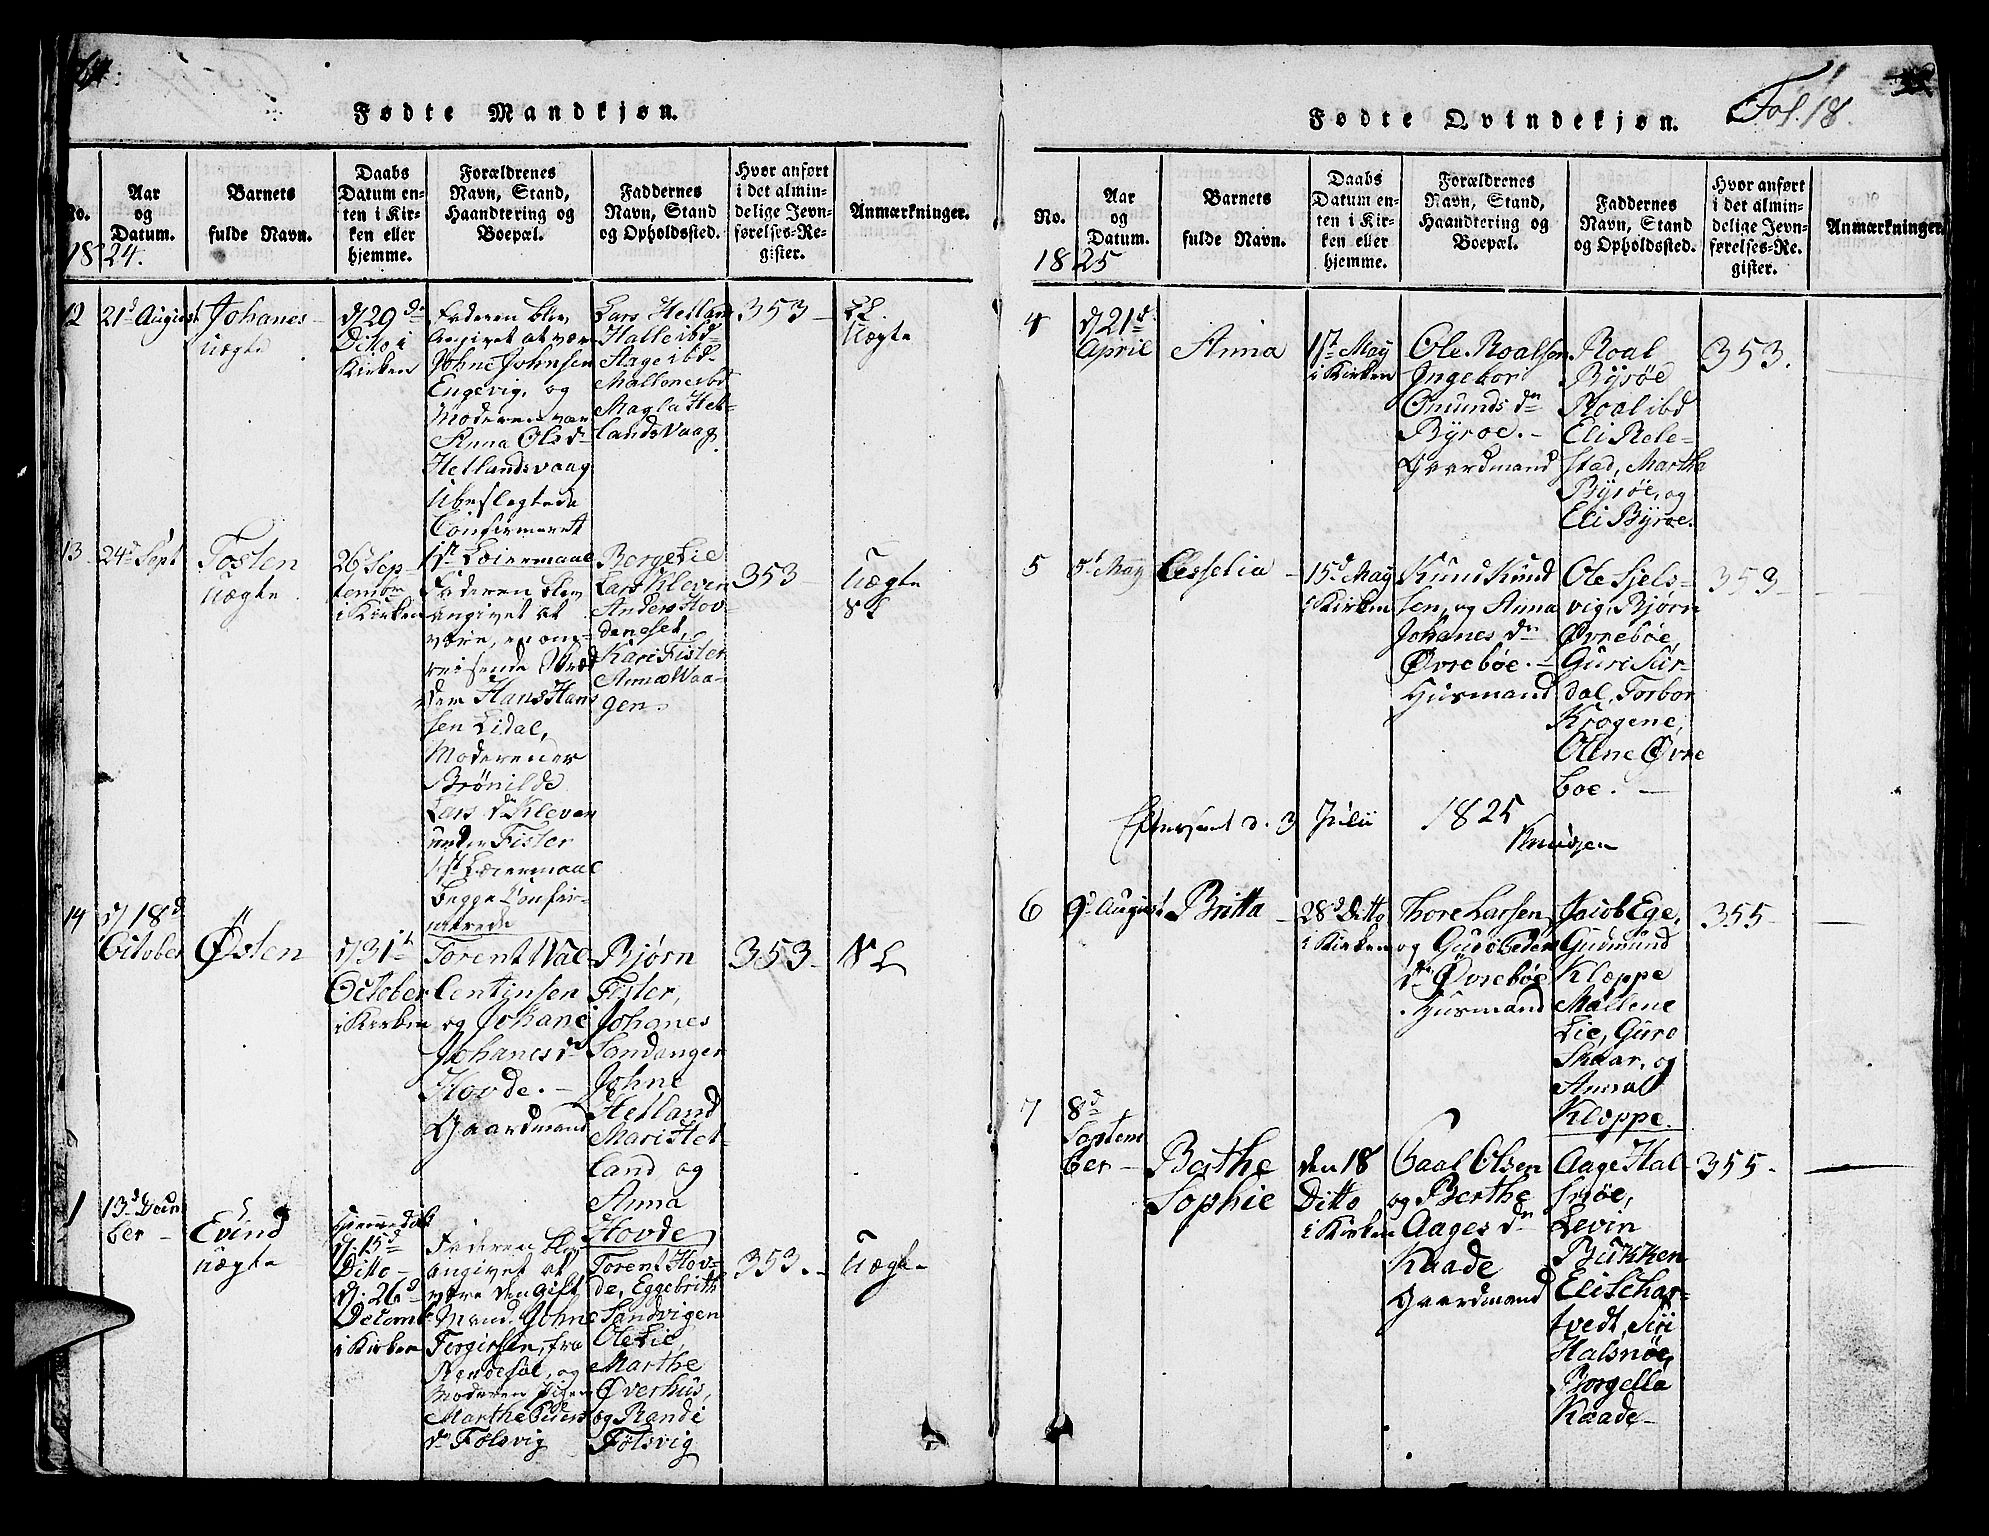 Fødte Mandkjøn.
No.
Aar
og
Datum.
Barnets
fulde Navn.
Daabs
Datum en-
ten i Kir-
ken eller
hjemme.
Forældrenes
Navn, Stand,
Haandtering og
Boepæl.
Faddernes
Navn, Stand
og Opholdssted.
Hvor anført
i det almin-
delige Jevn-
førelses-Re-
gister.
Anmærkninger.
1824.
12
21d August
Johanes
uægte
d 29de
Ditto i
Kirken
Faderen blev
angivet at være
Johne Johnsen
Engevig, og
Moderen var
Anna Olsd
Hellandsvaag
Ubeslegtede
Confirmeret
1st Leiermaal
Lars Helland
Halle ibd
Aage ibd
Maltene ibd
Magla Hel-
landsvaag
353
Uægte
13
24d Sept
Tosten
uægte
26d Sep-
tembr
i Kirken
Faderen blev
angivet at
være, en om-
reisende
Hans Han-
sen Lidal,
Moderen er
Brønilde
Lars d Kleven
under Fister
1st Leiermaal
begge Confir-
merede
Borge Lie
Lars Kleven
Anders Hov-
deneset,
Kari Fister
Anna Waa-
gen
353
Uægte
14
d 18d
October
Østen
d 31te
October
i Kirken
Torent Wal-
lentinsen
og Johane
Johanes d
Hovde.
Gaardmand
Bjørn
Fister,
Johanes
Sandanger
Johne
Helland
Mari Hel-
land og
Anna
Hovde
353
1
13d
ber
Evind
uægte
d 15d
Ditto
d. 26d
Decemb
i Kirken
Faderen blev
angivet at
være den gift
Mand. Johne
Torgersen, fra
og
Moderen Pigen
Marthe Peders
d Følsvig
Torent Hov-
de, Eggebrith
Sandvigen
Ole Lie,
Marthe
Øverhus,
og Rande
Følsvig
353.
Uægte
Fødte Qvindekjøn.
Fol. 18.
No.
Aar
og
Datum.
Barnets
fulde Navn.
Daabs
Datum en-
ten i Kir-
ken eller
hjemme.
Forældrenes
Navn, Stand,
Haandtering og
Boepæl.
Faddernes
Navn, Stand
og Opholdssted.
Hvor anført
i det almin-
delige Jevn-
førelses-Re-
gister.
Anmærkninger.
1825
4
d 21d
April
Anna
1st May
i Kirken
Ole Roalsen
Ingebor
Omunds d
Byrøe.
Gaardmand
Roal
Byrøe
Roal ibd
Eli Rele-
stad, Martha
Byrøe, og
Eli Byrøe.
353.
5
5d May
Cesselia
15d May
i Kirken
Knud Knud
sen, og Anna
Johanes d
Øvrebøe.
Husmand
Ole Sjels-
vig, Bjørn
Øvrebøe,
Guri Sür-
dal, Torbor
Krogene,
Olene Øvre
boe.
353
Efterseet d. 3 Julii 1825
Knudsen
6
9d August
Britta
28d Ditto
i Kirken
Thore Larsen,
og Guro Peders
d Øvrebøe
Husmand
Jacob Ege,
Gudmund
Kleppe
Maltene
Lie, Guro
Skaar, og
Anna
Kleppe.
355
7
8d
Septem
ber
Barthe
Sophie
den 18
Ditto
i Kirken
Paal Olsen
og Berthe
Aages d
Kaade
Gaardmand
Aage Hal-
snøe,
Levin
Bukken
Eli Schar-
tvedt, Siri
Halsnøe,
Borgella
Kaade
355.